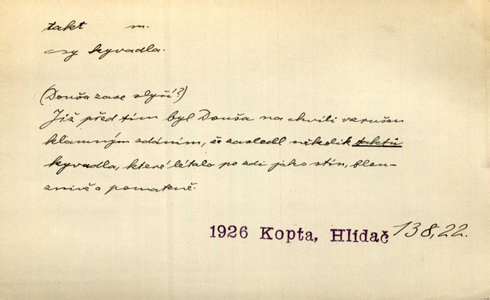 takt m.
ry kyvadla.
(Douša zase slyší?)
Již před tím byl Douša na chvíli vzrušen
klamným zdáním, že zaslechl několik taktů
kyvadla, které létalo po zdi jako stín, blou-
znivě a pomateně.
1926 Kopta, Hlídač 138,22.